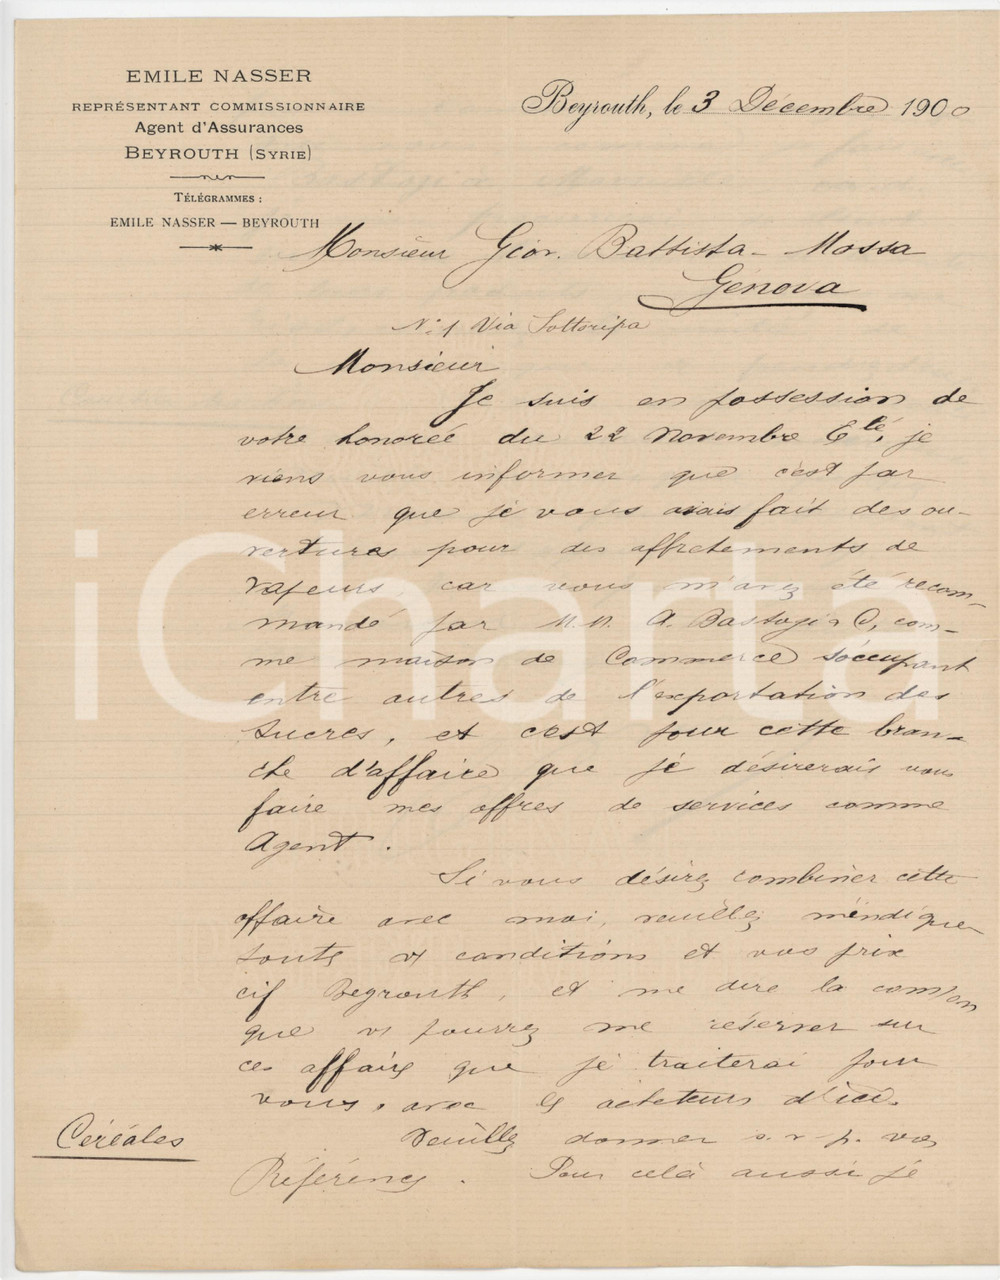 EMILE NASSER
REPRÉSENTANT COMMISSIONNAIRE
Agent d'Assurances
BEYROUTH (SYRIE)
TÉLÉGRAMMES :
EMILE NASSER — BEYROUTH
Beyrouth, le 3 Décembre 1900
Monsieur Giov. Battista - Mossa
Génova
N: 1 Via Sottoripa
Monsieur
Je suis en possession de
votre honorée du 22 Novembre Elé, je
viens vous informer que c'est par
erreur que je vous avais fait des ou-
vertures pour des affretements de
vapeurs, car vous m'avez été recom-
mandé par M.M. A. Bastogi & C, com-
me maison de Commerce s'occupant
entre autres de l'exportation des
Sucres, et c'est pour cette bran-
che d'affaire que je désirerais vous
faire mes offres de services comme
Agent.
Si vous désirez combiner cette
affaire avec moi, veuillez m'éndiquer
toute vs conditions et vos prix
cif Beyrouth, et me dire la com/on
que vs pourrez me réserver sur
ces affaire que je traiterai pour
vous, avec les acheteurs d'ici.
Céréales
Veuillez donner s. v. p. vos
Référence. Pour celà aussi je
iCharta